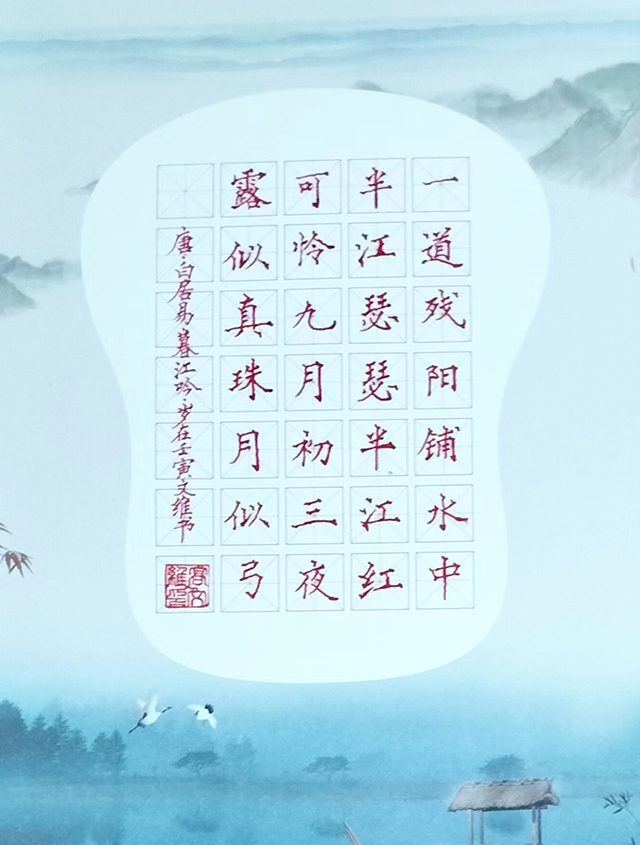 一道残阳铺水中
半江瑟瑟半江红
可怜九月初三夜
露似真珠月似弓
唐·白居易暮江吟·岁在壬寅文维书